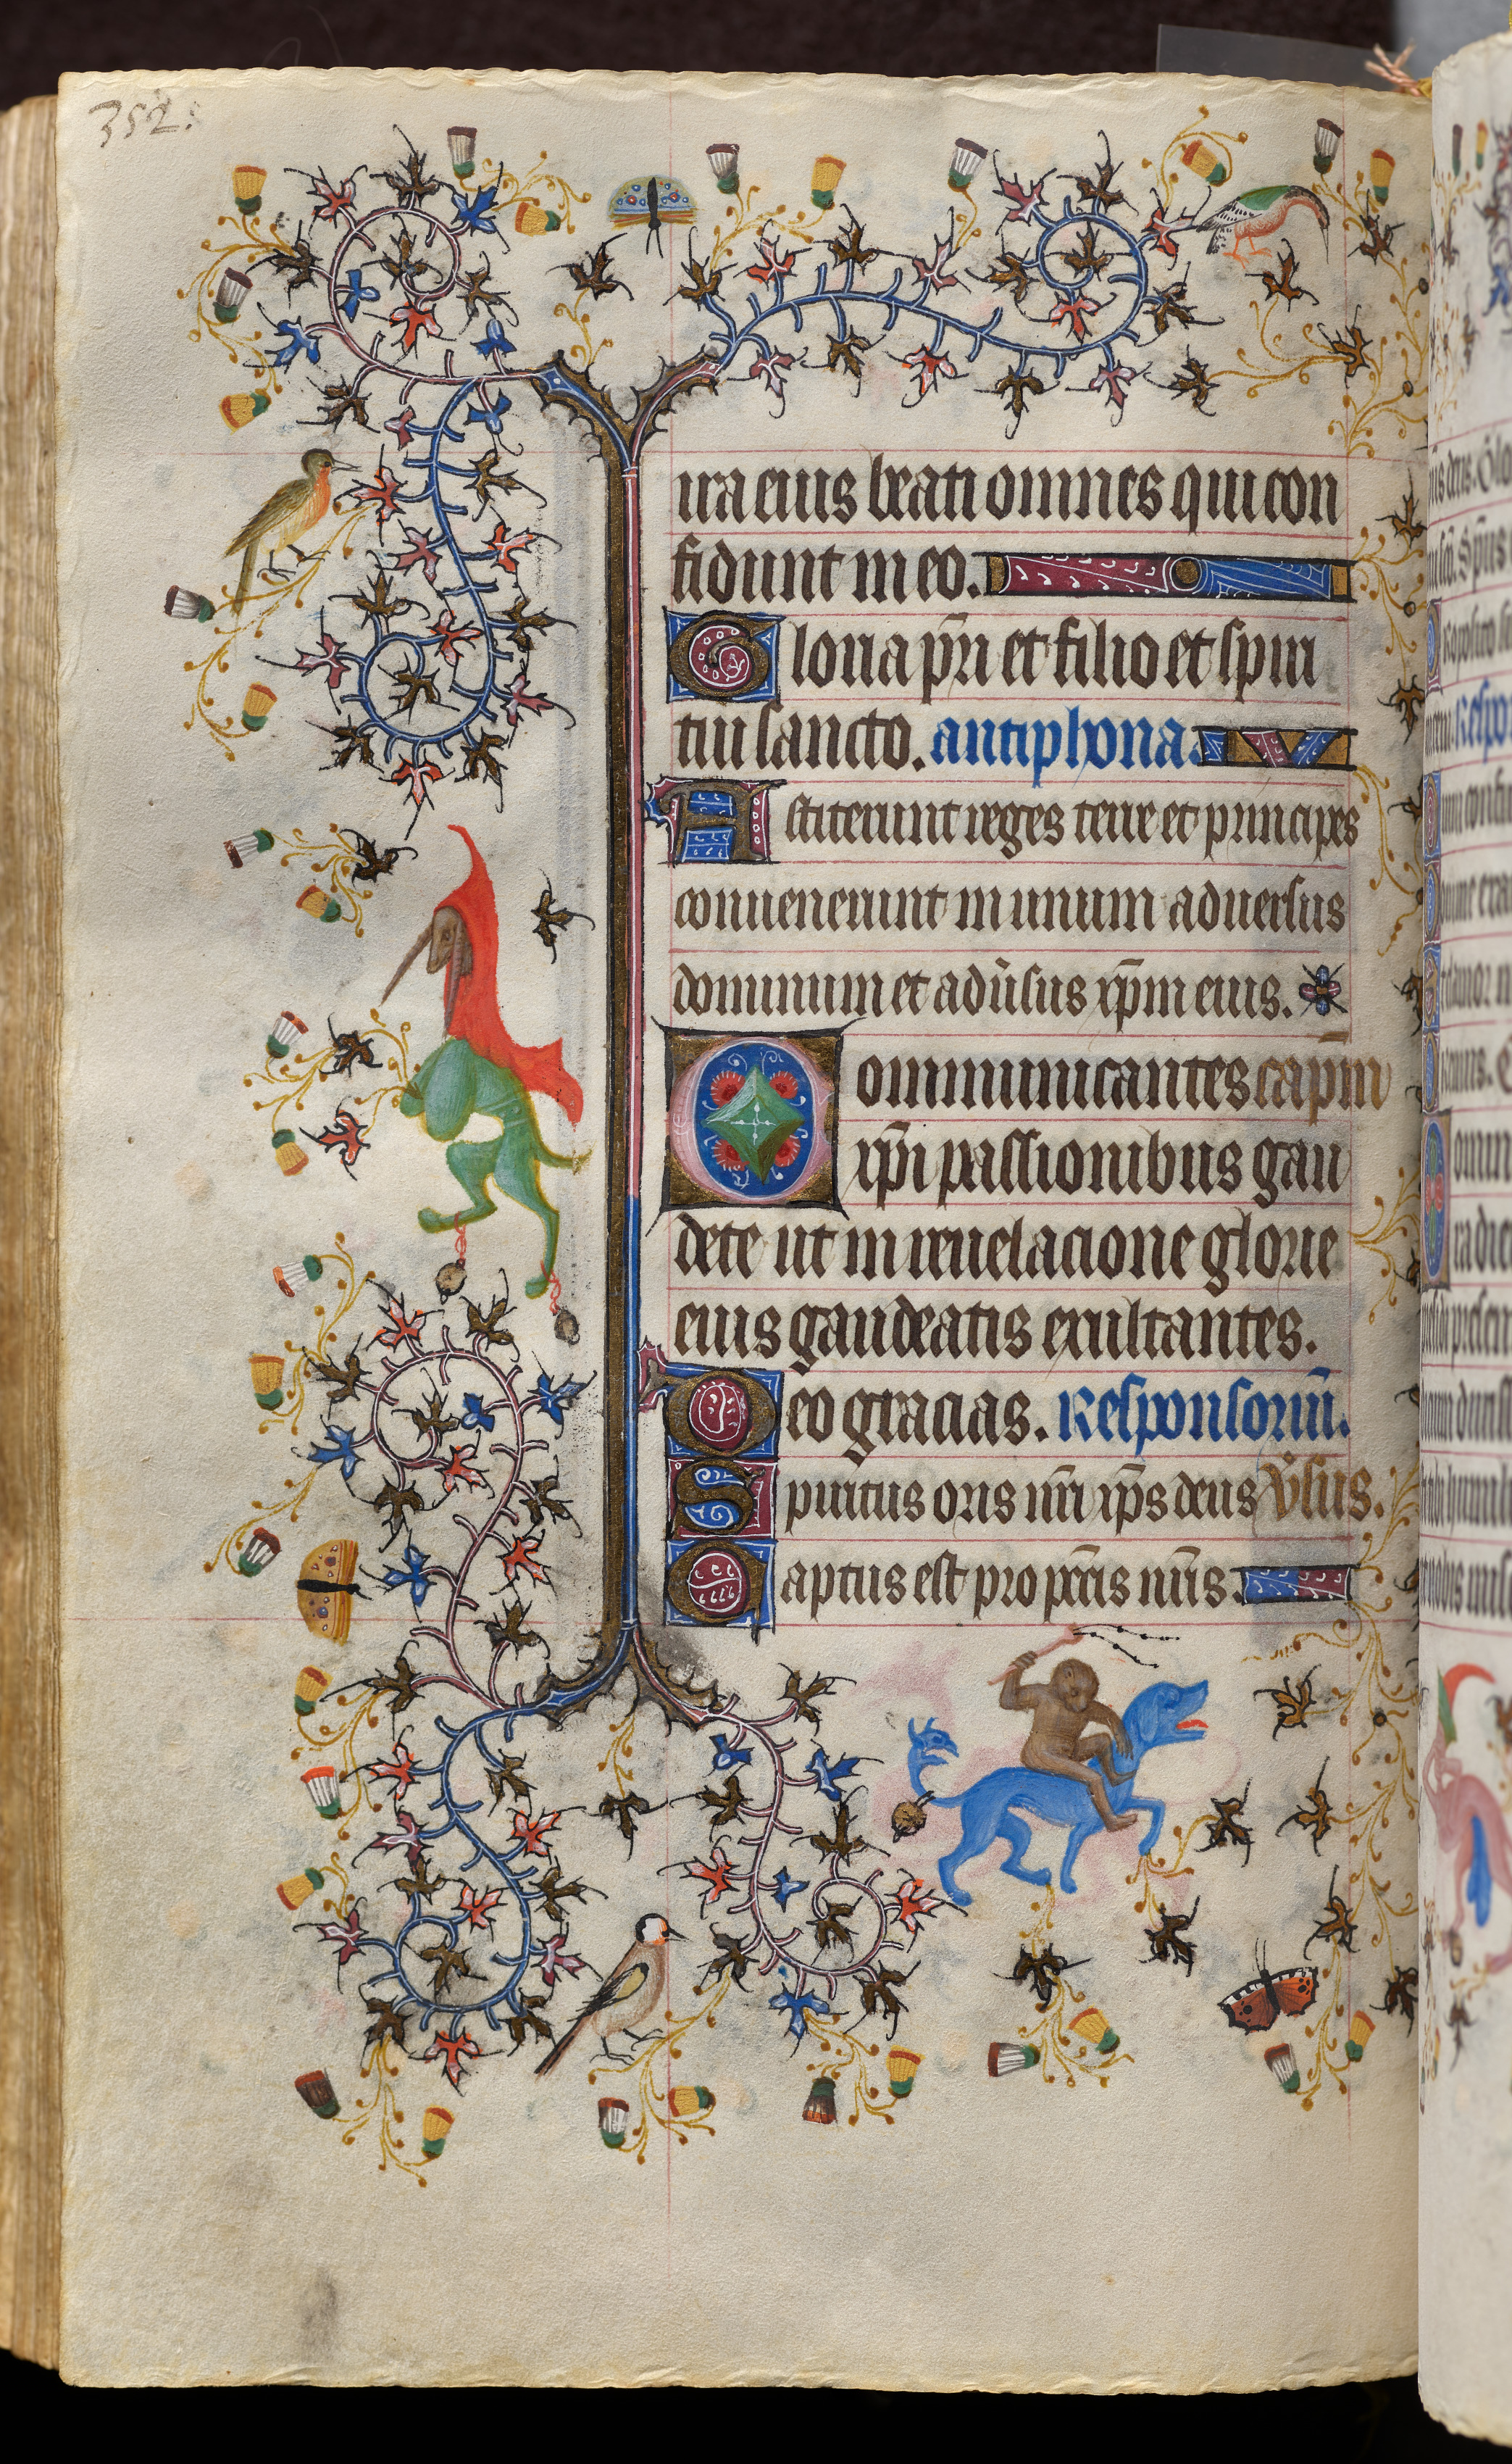 352.
ira eius beati omnes qui con
fidunt in eo.
Gloria pr̄i et filio et spiri
tui sancto. antiphona.
Astiterunt reges terre et principes
convenerunt in unum adversus
dominum et adūsus xp̄m eius.
Communicantes capm̄
xp̄i passionibus gau
dete ut in revelacione glorie
eius gaudeatis exultantes.
Deo gracias. Responsoriū.
Spiritus oris nr̄i xp̄s deus v̄sus.
Captus est pro pcc̄is nr̄is.